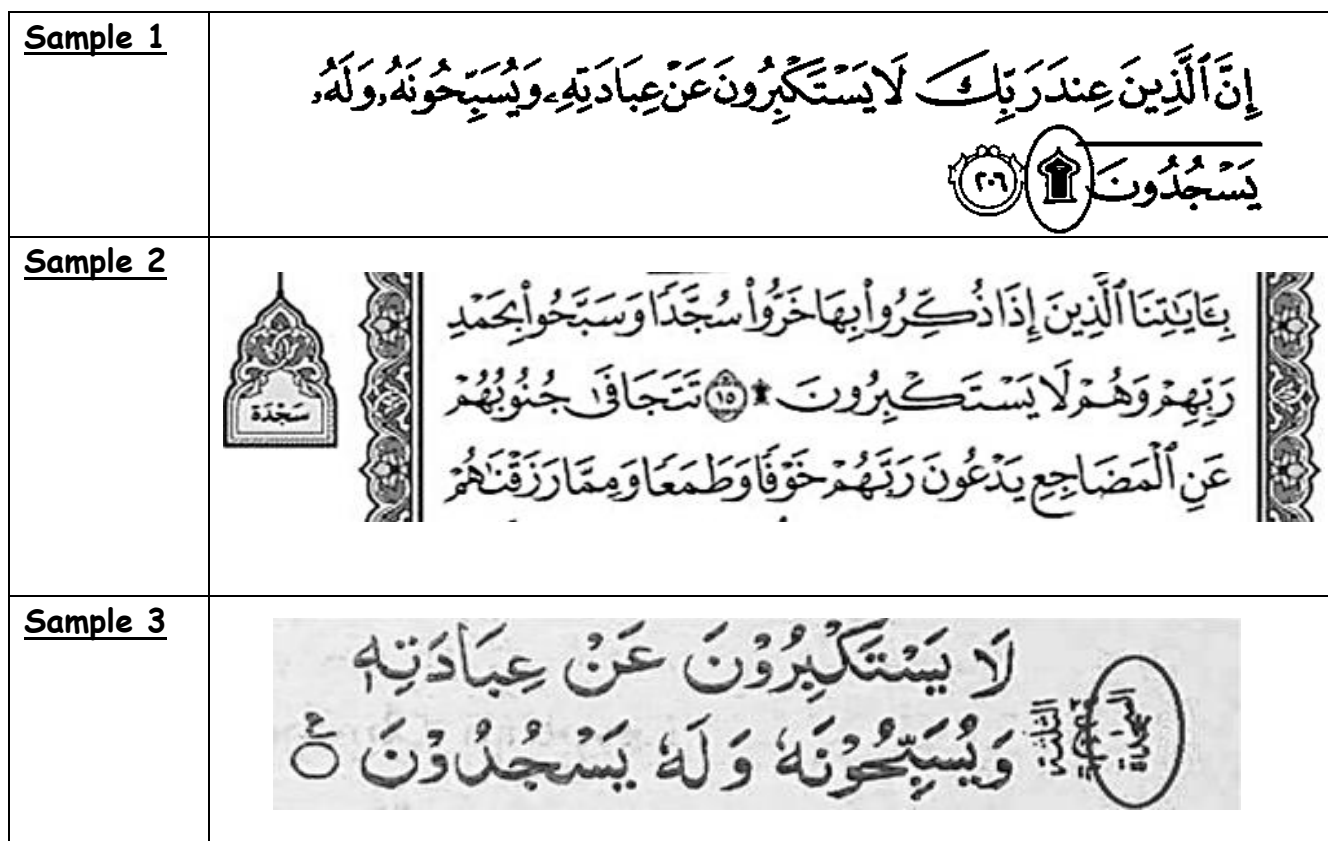 Sample 1
إِنَّ ٱلَّذِينَ عِندَ رَبِّكَ لَا يَسْتَكْبِرُونَ عَنْ عِبَادَتِهِۦ وَيُسَبِّحُونَهُۥ وَلَهُۥ
يَسْجُدُونَ ۩ ٢٠٦
Sample 2
بِـَٔايَـٰتِنَا ٱلَّذِينَ إِذَا ذُكِّرُوا۟ بِهَا خَرُّوا۟ سُجَّدًا وَسَبَّحُوا۟ بِحَمْدِ
رَبِّهِمْ وَهُمْ لَا يَسْتَكْبِرُونَ ۩ ١٥ تَتَجَافَىٰ جُنُوبُهُمْ
عَنِ ٱلْمَضَاجِعِ يَدْعُونَ رَبَّهُمْ خَوْفًا وَطَمَعًا وَمِمَّا رَزَقْنَـٰهُمْ
سَجْدَة
Sample 3
لَا يَسْتَكْبِرُوْنَ عَنْ عِبَادَتِهٖ
وَيُسَبِّحُوْنَهٗ وَ لَهٗ يَسْجُدُوْنَ
السجدة
الثلثة